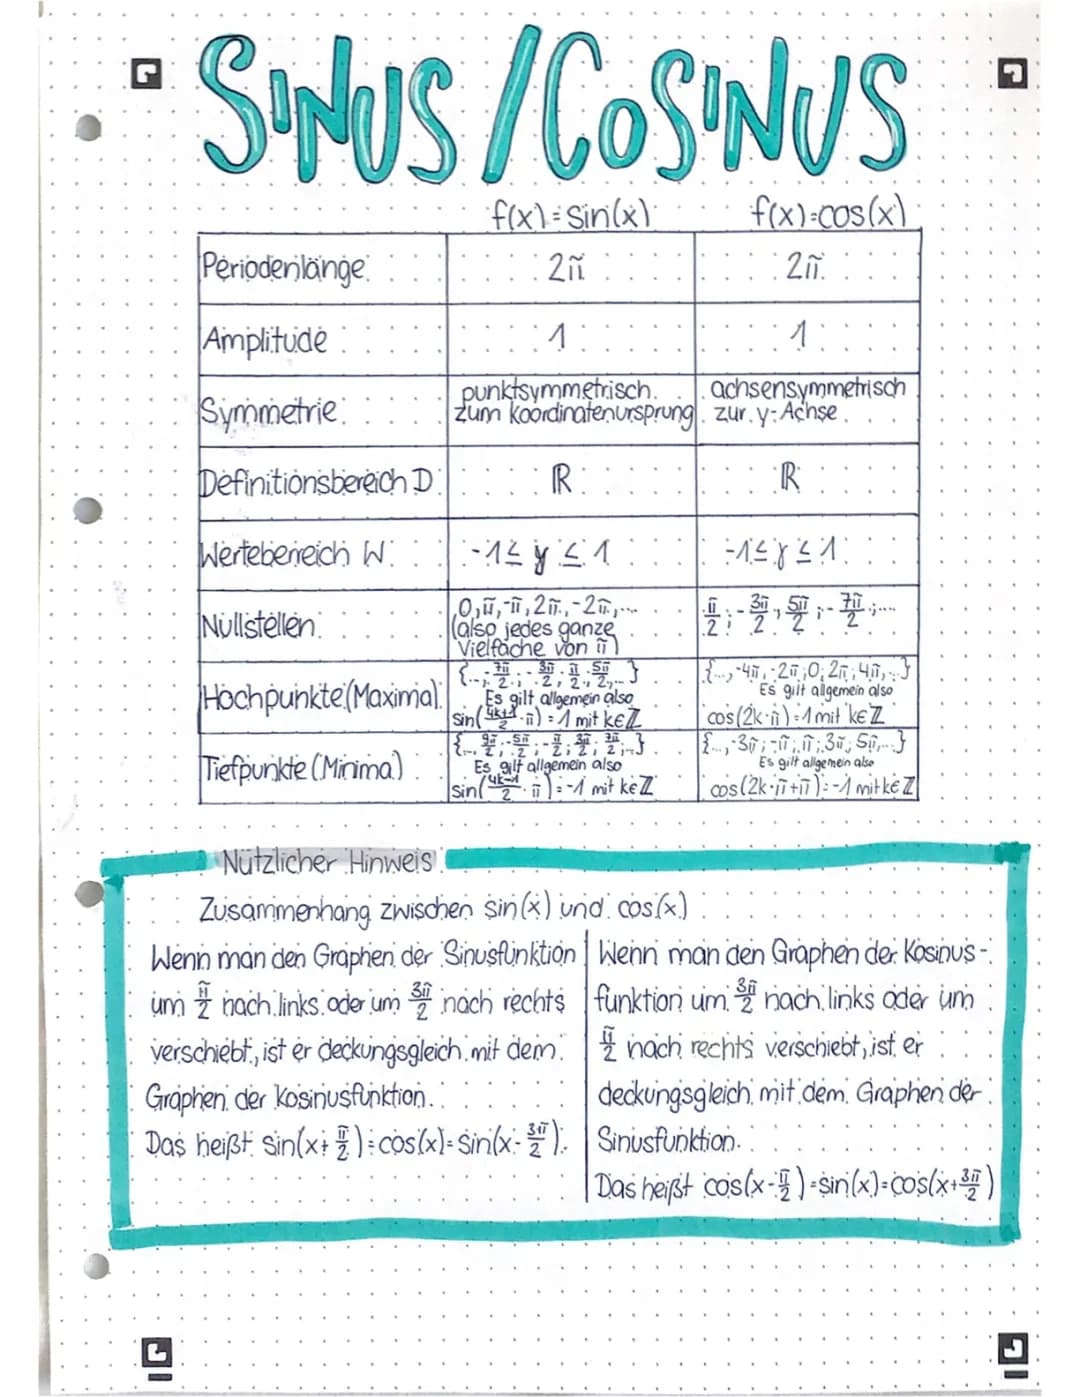 SINUS/COSINUS
f(x)=sin(x) f(x)=cos(x)
Periodenlänge 2π 2π
Amplitude 1 1
Symmetrie punktsymmetrisch zum Koordinatenursprung achsensymmetrisch zur y-Achse
Definitionsbereich D ℝ ℝ
Wertebereich W -1≤ y ≤ 1 -1≤ y ≤ 1
Nullstellen 0,π,-π,2π,-2π,... (also jedes ganze Vielfache von π) π/2; -3π/2; 5π/2; -7π/2;...
Hochpunkte (Maxima) {...; -7π/2; -3π/2; π/2; 5π/2;...} Es gilt allgemein also sin(4k+1/2·π)=1 mit k∈ℤ {...,-4π,-2π;0;2π;4π,...} Es gilt allgemein also cos(2k·π)=1 mit k∈ℤ
Tiefpunkte (Minima) {...; -9π/2; -5π/2; -π/2; 3π/2; 7π/2;...} Es gilt allgemein also sin(4k-1/2·π)=-1 mit k∈ℤ {...,-3π;-π;π;3π;5π,...} Es gilt allgemein also cos(2k·π+π)=-1 mit k∈ℤ
Nützlicher Hinweis
Zusammenhang zwischen sin(x) und cos(x)
Wenn man den Graphen der Sinusfunktion
um π/2 nach links oder um 3π/2 nach rechts
verschiebt, ist er deckungsgleich mit dem
Graphen der Kosinusfunktion.
Das heißt sin(x+π/2)=cos(x)=sin(x-3π/2).
Wenn man den Graphen der Kosinus-
funktion um 3π/2 nach links oder um
π/2 nach rechts verschiebt, ist er
deckungsgleich mit dem Graphen der
Sinusfunktion.
Das heißt cos(x-π/2)=sin(x)=cos(x+3π/2)